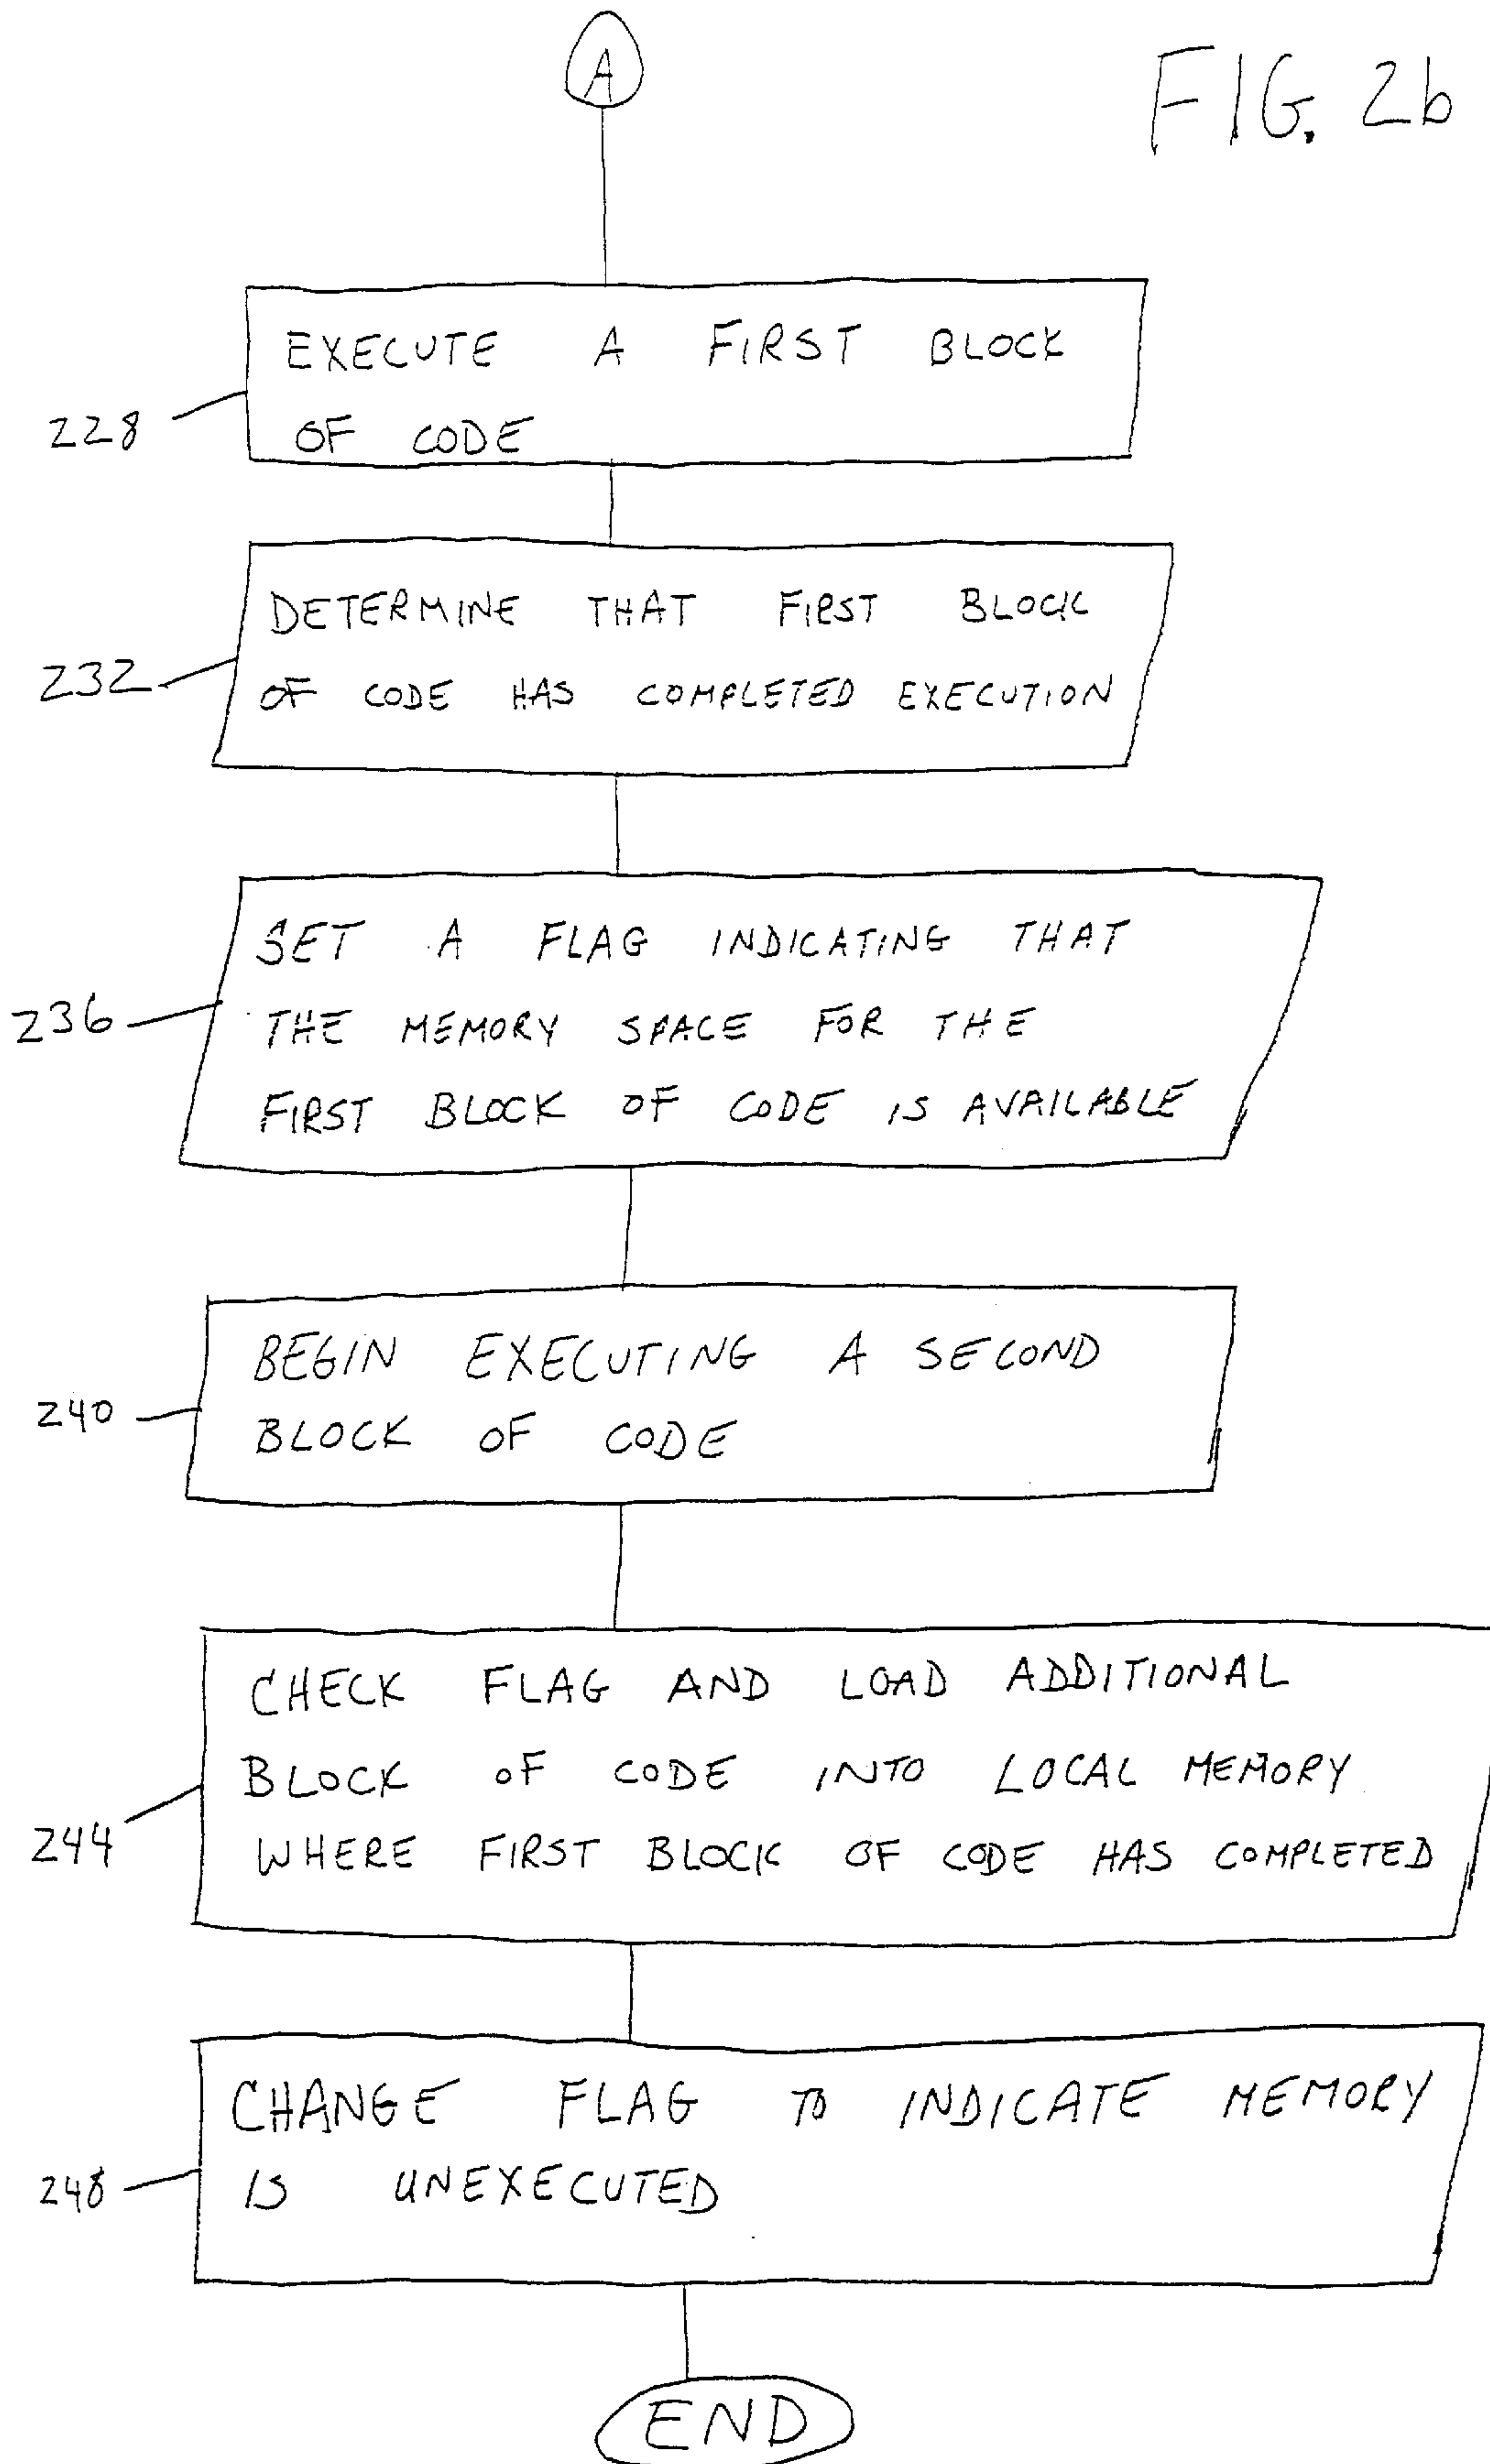 A
FIG. 2b
EXECUTE A FIRST BLOCK
OF CODE
228
DETERMINE THAT FIRST BLOCK
OF CODE HAS COMPLETED EXECUTION
232
SET A FLAG INDICATING THAT
THE MEMORY SPACE FOR THE
FIRST BLOCK OF CODE IS AVAILABLE
236
BEGIN EXECUTING A SECOND
BLOCK OF CODE
240
CHECK FLAG AND LOAD ADDITIONAL
BLOCK OF CODE INTO LOCAL MEMORY
WHERE FIRST BLOCK OF CODE HAS COMPLETED
244
CHANGE FLAG TO INDICATE MEMORY
IS UNEXECUTED
248
END